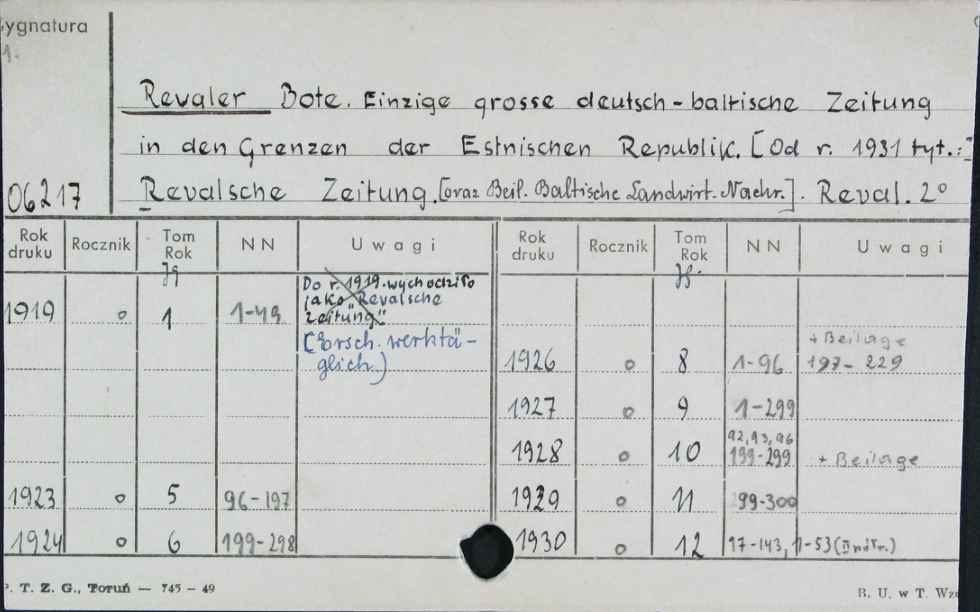 ygnatura
1.
Revaler Bote. Einzige grosse deutsch-baltische Zeitung
in den Grenzen der Estnischen Republik. [Od r. 1931 tyt.:
06217 Revalsche Zeitung. [oraz Beil. Baltische Landwirt. Nachr.]. Reval. 2°
Rok druku Rocznik Tom Rok NN Uwagi Rok druku Rocznik Tom Rok NN Uwagi
Jg Jg.
1919 o 1 1-49 Do r. 1919 wychodziło
jako "Revalsche
Zeitung"
(Ersch. werktä-
glich.)
+ Beilage
1926 o 8 1-96 197-229
1927 o 9 1-299
92,93,96
1928 o 10 199-299 + Beilage
1923 o 5 96-197 1929 o 11 99-300
1924 o 6 199-298 1930 o 12 17-143, 1-53
P. T. Z. G., Toruń — 745 – 49 B. U. w T. Wz